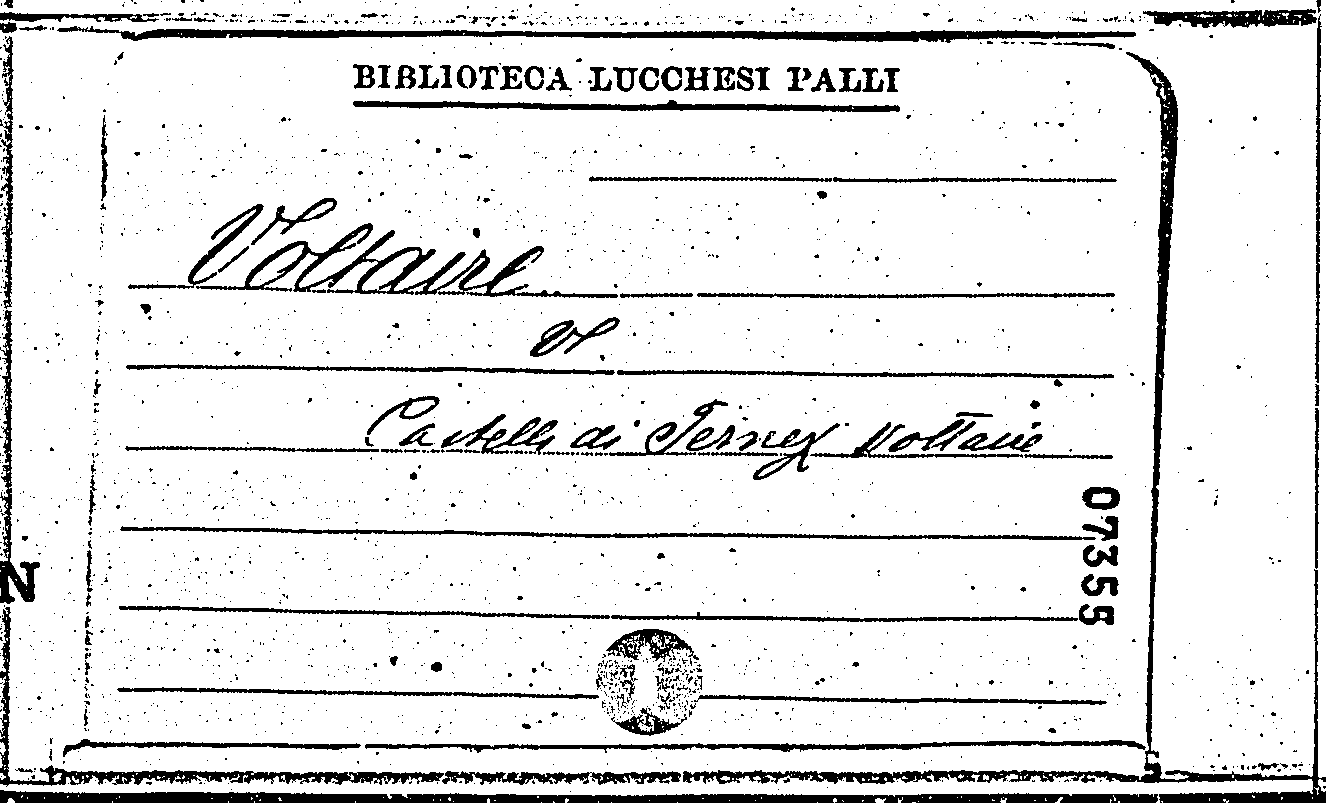 BIBLIOTECA LUCCHESI PALLI
Voltaire
V.
Castelli di Ferney Voltaire
07355
N